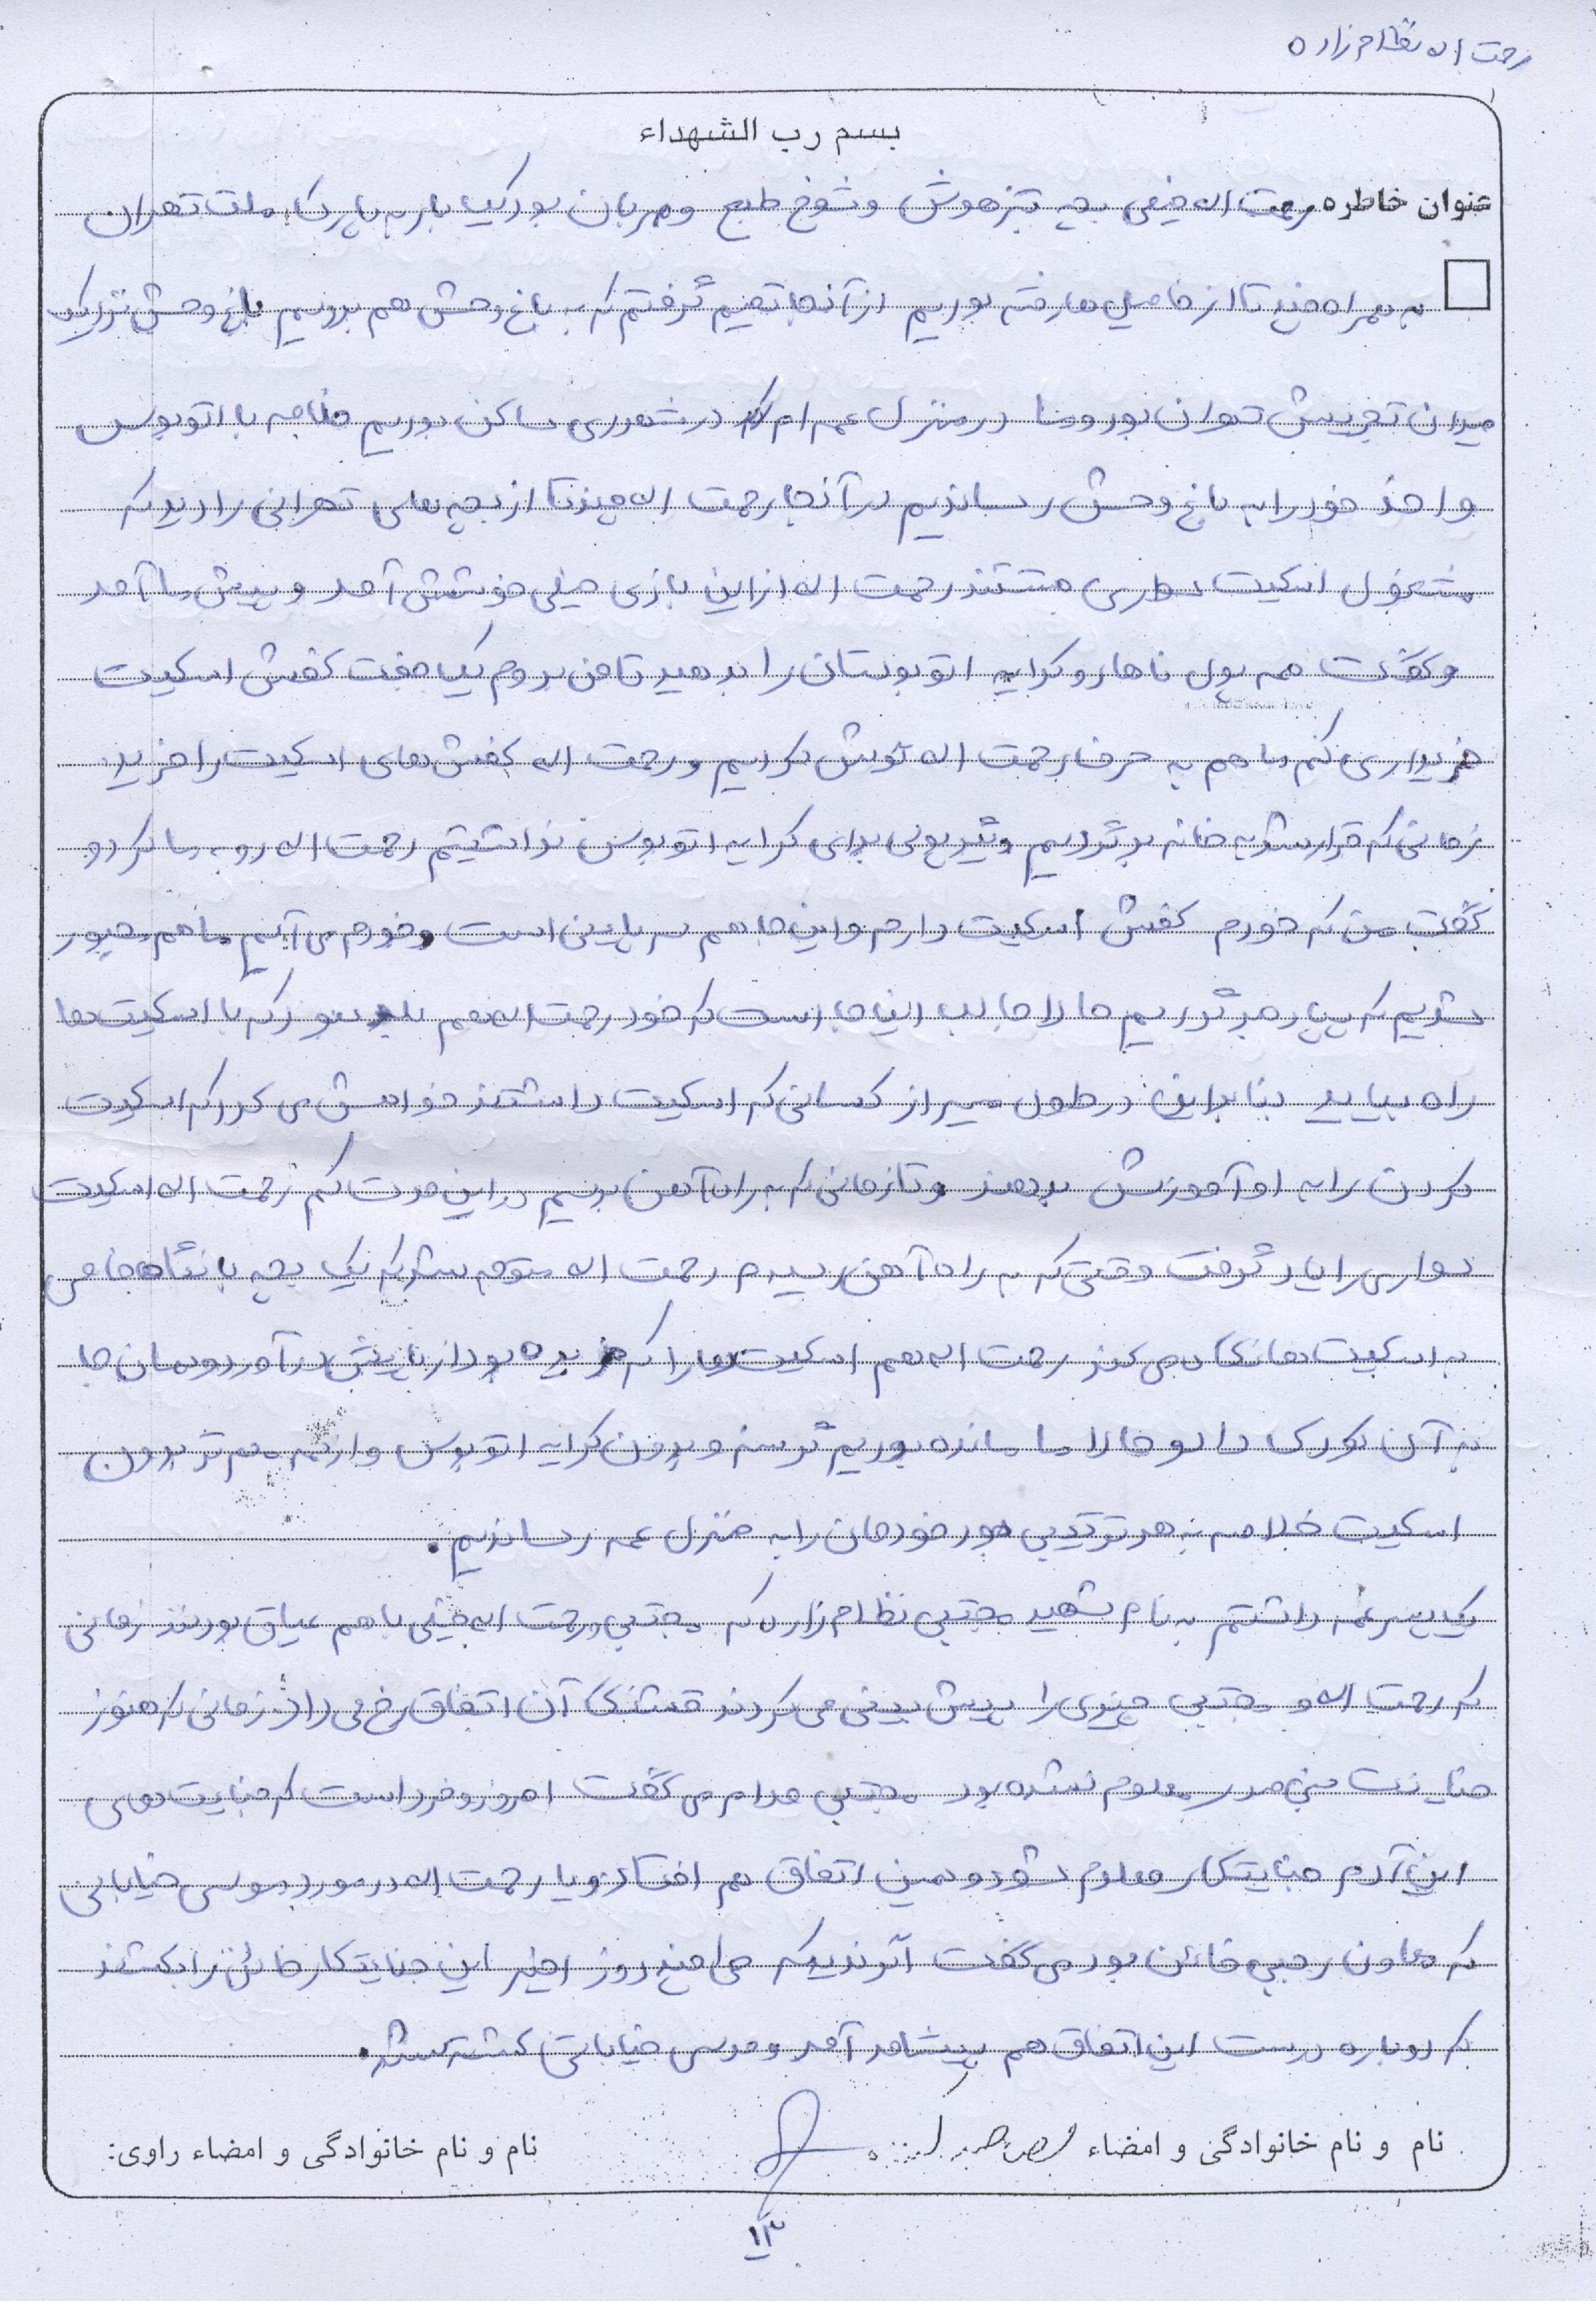 رحمت اله نظام زاده
بسم رب الشهداء
عنوان خاطره رحمت اله خیلی بچه تیزهوش و شوخ طبع و مهربان بود یک بار به پارک ملت تهران
به همراه چند تا از فامیل ها رفته بودیم از آنجا تصمیم گرفتم که به باغ وحش هم برویم باغ وحش نزدیک
میدان تجریش تهران بود و ما در منزل عمه ام که در شهرری ساکن بودیم خلاصه با اتوبوس
واحد خود را به باغ وحش رساندیم در آنجا رحمت اله چند تا از بچه های تهرانی را دید که
مشغول اسکیت سواری هستند رحمت اله از این بازی خیلی خوشش آمد و پیش ما آمد
و گفت همه پول ناهار و کرایه اتوبوستان را بدهید تا من بروم یک جفت کفش اسکیت
خریداری کنم ما هم به حرف رحمت اله گوش کردیم و رحمت اله کفش های اسکیت را خرید.
زمانی که قرار شد به خانه برگردیم دیگر پولی برای کرایه اتوبوس نداشتیم رحمت اله رو به ما کرد و
گفت من که خودم کفش اسکیت دارم و این جا هم سرپایینی است و خودم می آیم ما هم مجبور
شدیم که پیاده برگردیم حالا جالب این جا است که خود رحمت اله هم بلد نبود که با اسکیت ها
راه بیاید بنابراین در طول مسیر از کسانی که اسکیت داشتند خواهش می کرد که اسکیت
کردن را به او آموزش بدهند و تا زمانی که به راه آهن برسیم در این مدت کم رحمت اله اسکیت
سواری را یاد گرفت وقتی که به راه آهن رسیدم رحمت اله متوجه شد که یک بچه با نگاه خاصی
به اسکیت ها نگاه می کند رحمت اله هم اسکیت ها را که خریده بود از پایش درآورد و همان جا
به آن کودک داد و حالا ما مانده بودیم گرسنه و بدون کرایه اتوبوس و از همه مهم تر بدون
اسکیت خلاصه به هر ترتیبی بود خودمان را به منزل عمه رساندیم.
یک پسر عمه داشتم به نام شهید مجتبی نظام زاده که مجتبی و رحمت اله خیلی با هم عیاق بودند زمانی
که رحمت اله و مجتبی چیزی را پیش بینی می کردند قشنگ آن اتفاق رخ می داد. زمانی که هنوز
خیانت بنی صدر معلوم نشده بود مجتبی مدام می گفت امروز و فردا است که جنایت های
این آدم جنایتکار معلوم شود و همین اتفاق هم افتاد و یا رحمت اله در مورد موسی خیابانی
که معاون رجبی خائن بود می گفت آنرندیکه طی چند روز اخیر این جنایتکار خائن را بکشند
که دوباره درست این اتفاق هم پیشامد آمد و موسی خیابانی کشته شد.
نام و نام خانوادگی و امضاء
نام و نام خانوادگی و امضاء راوی:
۱۳